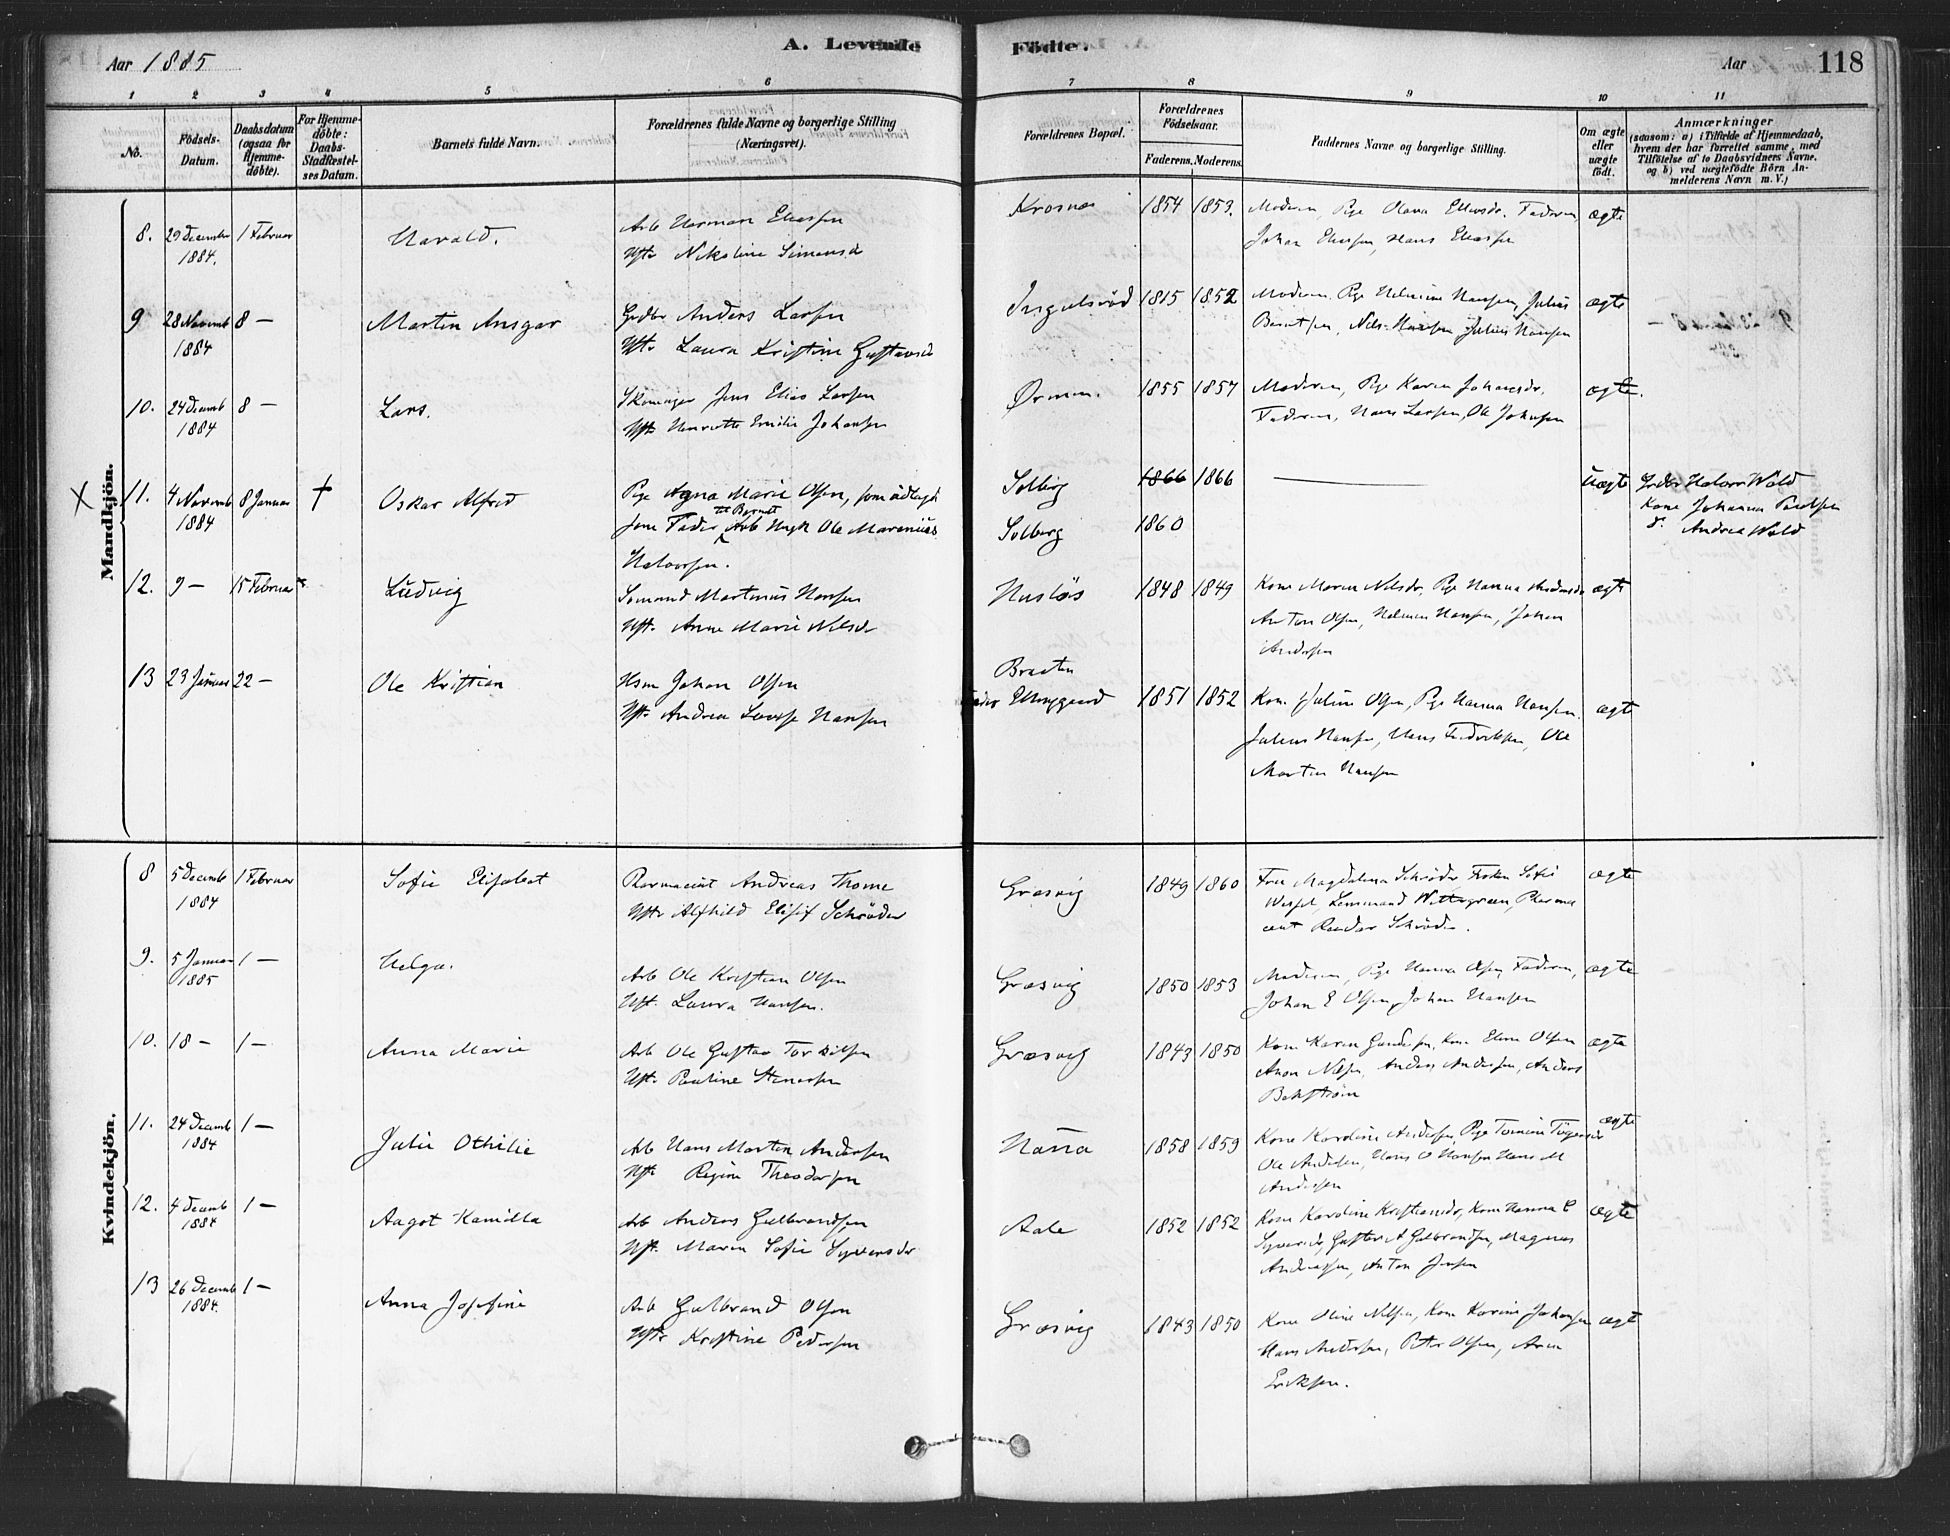 A. Levende Födte.
Aar 1885
Aar 118
1 2 3 4 5 6 7 8 9 10 11
No.
Födsels-Datum.
Daabsdatum (ogsaa for Hjemme-döbte).
For Hjemme-döbte: Daabs-Stadfæstel-ses Datum.
Barnets fulde Navn.
Forældrenes fulde Navne og borgerlige Stilling (Næringsvei).
Forældrenes Bopæl.
Forældrenes Födselsaar.
Faderens. Moderens.
Faddernes Navne og borgerlige Stilling.
Om ægte eller uægte födt.
Anmærkninger
(saasom: a) i Tilfælde af Hjemmedaab, hvem der har forrettet samme, med Tilföielse af to Daabsvidners Navne, og b) ved uægtefödte Börn An-melderens Navn m. V.)
Mandkjön.
8. 29 December 1 Februar Harald. Arb Herman Eliassen Krosnæs 1854 1853. Moderen, Pige Olava Ellefsdr. Faderen ægte
1884. Hft. Nikoline Simensd Johan Eliassen, Hans Eliassen
9 28 Novemb 8 — Martin Ansgar Grdbr Anders Larsen Ingulsröd 1815 1852 Moderen, Pige Helmine Hansen, Julius ægte
1884 Hft. Laura Kristine Gustavsd Berntsen, Nils Hansen Julius Hansen
10. 24 Decemb 8 — Lars. Skomager Jens Elias Larsen Ørmen. 1855 1857 Moderen, Pige Karen Johansdr. ægte.
1884 Hft. Henriette Emilie Johansen Faderen, Hans Larsen, Ole Johansen
X 11. 4 Novemb 8 Januar † Oskar Alfred Pige Agna Marie Olsen, som udlagt Solberg 1866 1866 — Uægte Halvor Wold
1884 som Fader til Barnet Arb Ungk Ole Marenius Solberg 1860 Kone Johanna Paulsen
Halvorsen. d. Andrea Wold
12. 9 — 15 Februar Ludvig Sömand Martinus Hansen Husløs 1848 1849 Kone Maren Nilsdr, Pige Hanna ægte
Hft. Anne Marie Nilsdr Anton Olsen, Helmer Hansen, Johan
Andersen
13 23 Januar 22 — Ole Kristian Hsm Johan Olsen Braaten
Hft. Andrea Lovise Hansen under Elinggaard 1851 1852 Kone Juline Olsen, Pige Hanna Hansen. ægte
Julius Hansen, Hans Fredriksen, Ole
Martin Hansen
Kvindekjön.
8 5 Decemb 1 Februar Sofie Elisabet Pharmaceut Andreas Thome Græsvig 1849 1860 Frue Magdalena Schröder Frøken Sofie ægte
1884 Hft. Alfhild Elisif Schröder Wessel, Lensmand Wittegreen, Pharma
ceut Reidar Schröder.
9. 5 Januar 1 — Helga. Arb Ole Kristian Olsen Græsvig 1850 1853 Moderen, Pige Hanna Olsen Faderen, ægte
1885 Hft. Laura Hansen. Johan E Olsen, Johan Hansen
10. 18 — 1 — Anna Marie Arb Ole Gustav Torkilsen Græsvig 1843 1850 Kone Karen Gundersen, Kone Elene Olsen ægte
Hft. Pauline Stenersen Aron Nilsen, Anders Andersen, Anders
Bekström
11. 24 Decemb 1 — Julie Othilie Arb Hans Martin Andersen Nässa 1858 1859 Kone Karoline Andersen, Pige ægte
1884 Hft. Regine Theodorsen Ole Andersen, Hans O Hansen Hans M
Andersen
12. 4 Decemb 1 — Aagot Kamilla Arb Anders Gulbrandsen Aale 1852 1852 Kone Karoline Kristiansdr, Kone Hanna C ægte
1884 Hft. Maren Sofie Syversdr Syversdr, Gustav A Gulbrandsen, Magnus
Andreassen, Anton Jensen
13 26 Decemb 1 — Anna Josefine Arb Gulbrand Olsen Græsvig 1843 1850 Kone Oline Nilsen, Kone Karine Johansen ægte
1884. Hft. Kristine Pedersen Hans Andersen, Petter Olsen, Aron
Eriksen.